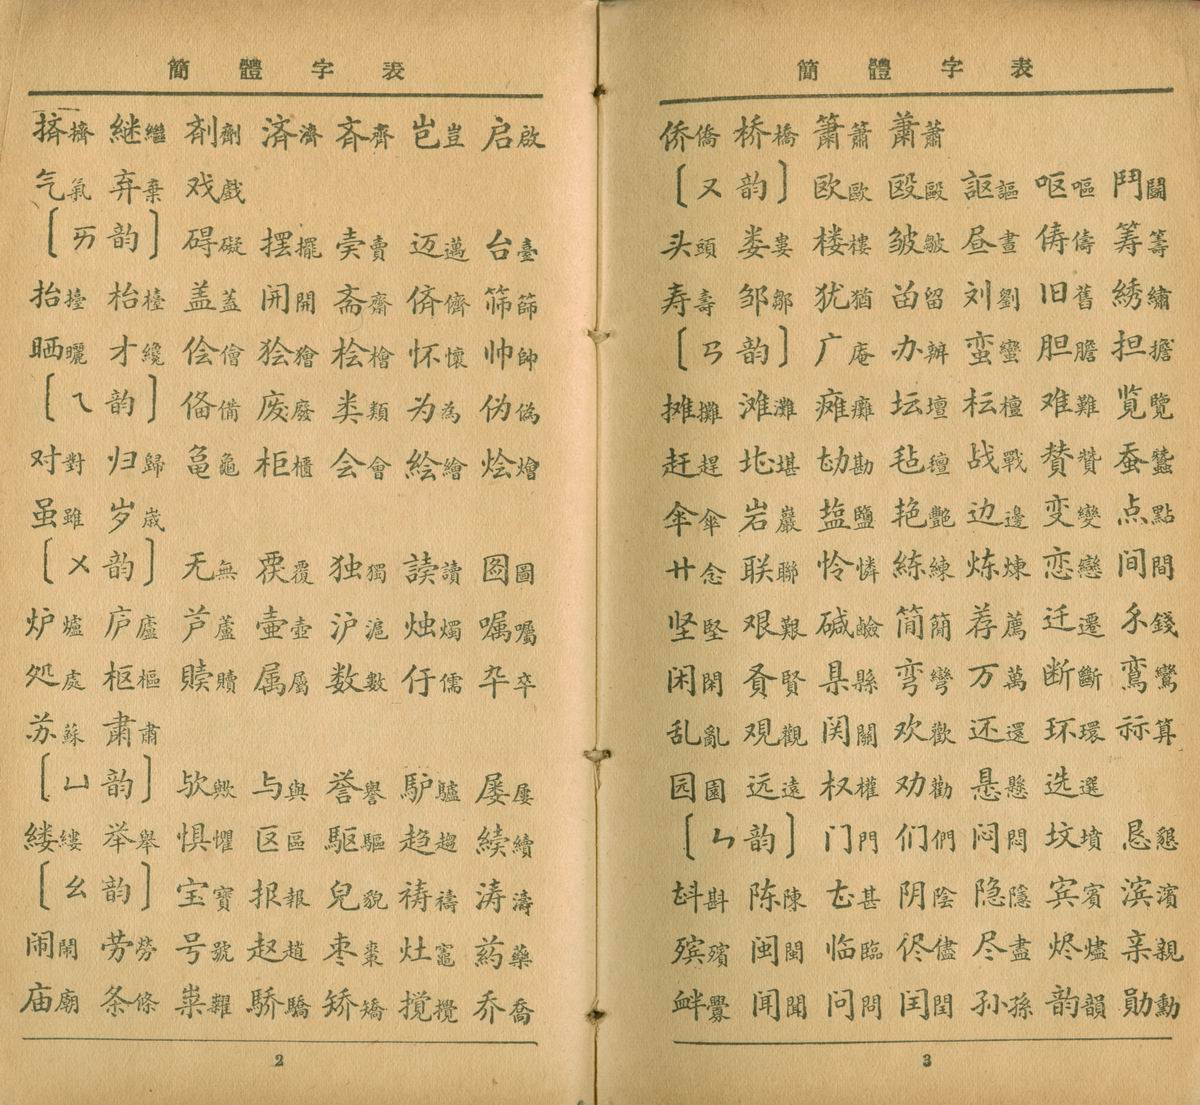 簡體字表
挤擠 継繼 剤劑 済濟 斉齊 岂豈 启啟
气氣 弃棄 戏戲
〔ㄞ韵〕 碍礙 摆擺 卖賣 迈邁 台臺
抬擡 枱檯 盖蓋 开開 斋齋 侪儕 筛篩
晒曬 才纔 侩儈 狯獪 桧檜 怀懷 帅帥
〔ㄟ韵〕 俻備 废廢 类類 为為 伪偽
对對 归歸 龟龜 柜櫃 会會 絵繪 烩燴
虽雖 岁歲
〔ㄨ韵〕 无無 覆 独獨 読讀 图圖
炉爐 庐廬 芦蘆 壶壺 沪滬 烛燭 嘱囑
処處 枢樞 赎贖 属屬 数數 儒 卒
苏蘇 肃肅
〔ㄩ韵〕 欤歟 与與 誉譽 馿驢 屡屢
缕縷 举舉 惧懼 区區 駆驅 趋趨 続續
〔ㄠ韵〕 宝寶 报報 皃貌 祷禱 涛濤
闹鬧 劳勞 号號 赵趙 枣棗 灶竈 药藥
庙廟 条條 糶 骄驕 矫矯 搅攪 乔喬
2
簡體字表
侨僑 桥橋 箫簫 萧蕭
〔ㄡ韵〕 欧歐 殴毆 讴謳 呕嘔 鬥鬭
头頭 娄婁 楼樓 皱皺 昼晝 俦儔 筹籌
寿壽 邹鄒 犹猶 畄留 刘劉 旧舊 绣繡
〔ㄢ韵〕 广庵 办辦 蛮蠻 胆膽 担擔
摊攤 滩灘 瘫癱 坛壇 枟檀 难難 览覽
赶趕 堪 勘 毡氊 战戰 赞贊 蚕蠶
伞傘 岩巖 盐鹽 艳艷 边邊 变變 点點
廿念 联聯 怜憐 練練 炼煉 恋戀 间間
坚堅 艰艱 碱鹼 简簡 荐薦 迁遷 錢
闲閑 贤賢 县縣 弯彎 万萬 断斷 鸾鸞
乱亂 观觀 関關 欢歡 还還 环環 祘算
园園 远遠 权權 劝勸 悬懸 选選
〔ㄣ韵〕 门門 们們 闷悶 坟墳 恳懇
斟 陈陳 甚 阴陰 隐隱 宾賓 滨濱
殡殯 闽閩 临臨 侭儘 尽盡 烬燼 亲親
衅釁 闻聞 问問 闰閏 孙孫 韵韻 勋勳
3